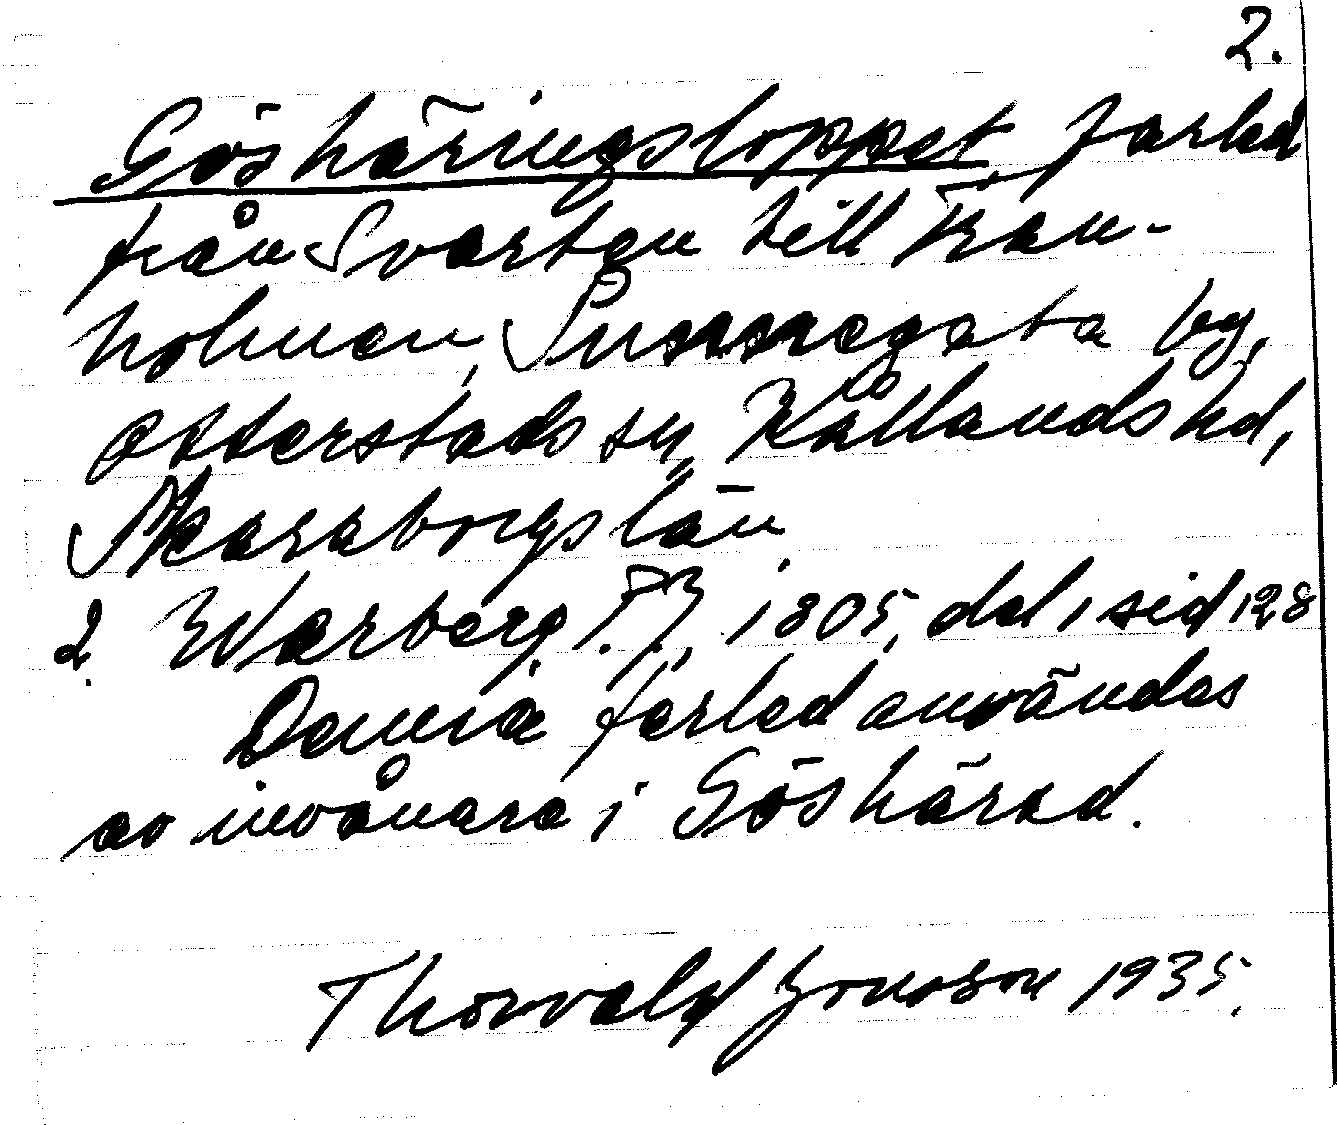 2.
Göshäringsloppet, farled
från Svarten till Tran-
holmen, Sunnegata by,
Otterstads sn, Kållands hd,
Skaraborgs län
2. Warberg. T.J. 1805, del 1 sid 128
Denna farled användes
av invånare i Gös härad.
Thorvald Jonsson 1935.